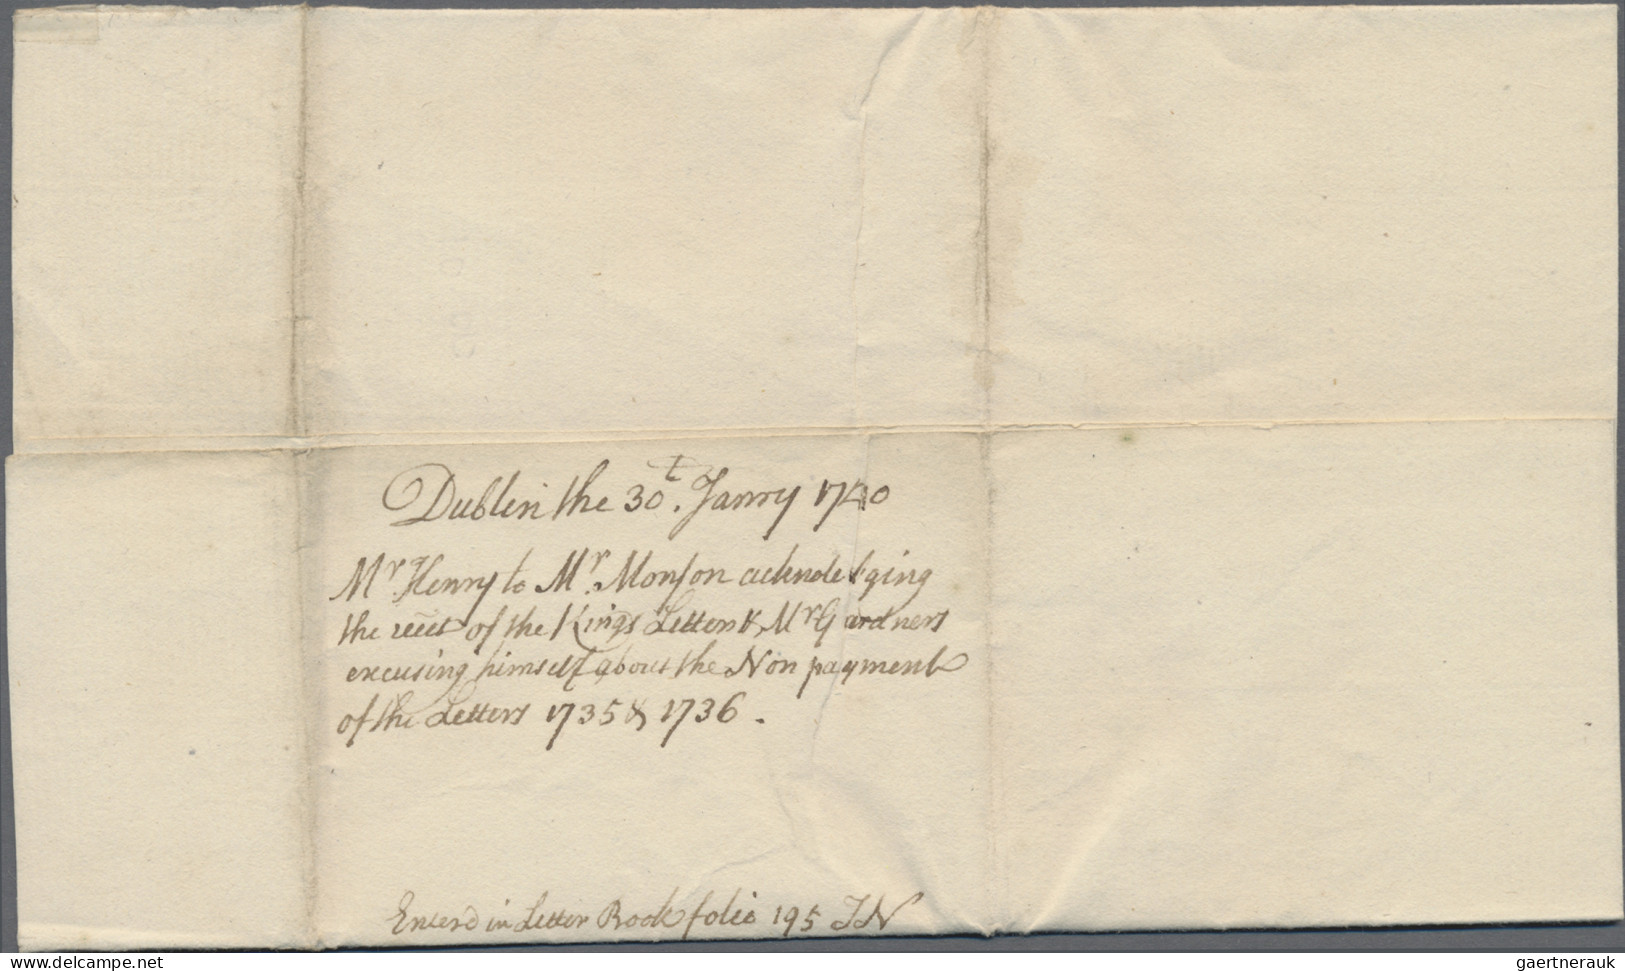 Dublin the 30t. Janry 1740
Mr. Henry to Mr. Monson acknoledging
the rect of the Kings Letter & Mr Gardners
excusing himself about the Non payment
of the Letters 1735 & 1736.
Enterd in Letter Book folio 195 JN
www.delcampe.net
gaertnerauk